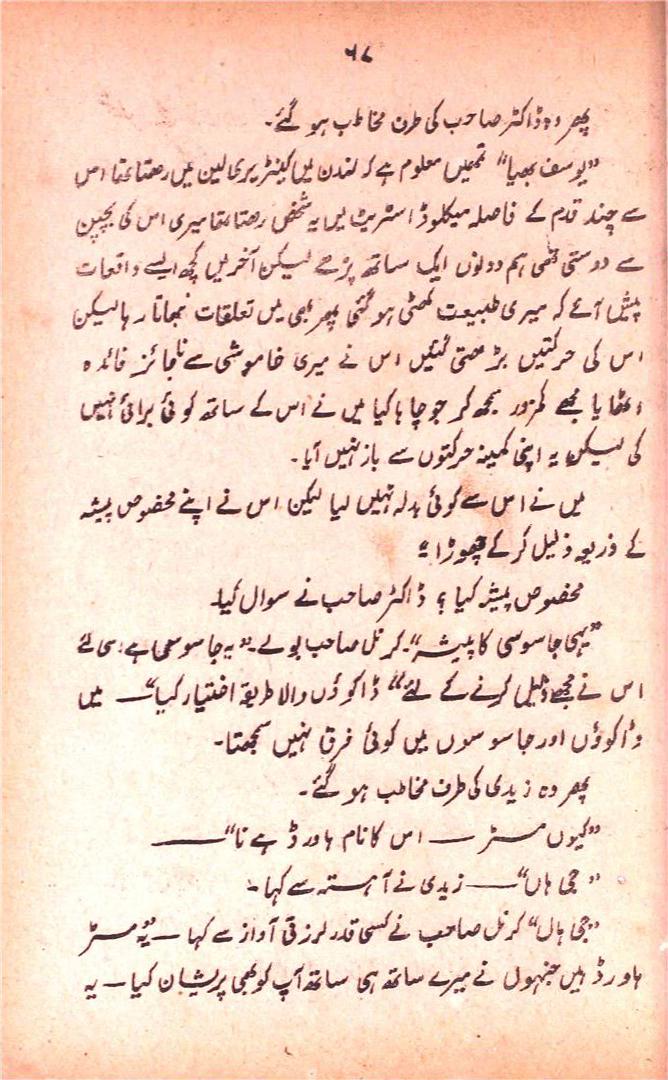 ۶۸
پھر وہ ڈاکٹر صاحب کی طرف مخاطب ہو گئے۔
”یوسف بھیا“ تمہیں معلوم ہے کہ لندن میں کینٹربری لین میں رہتا تھا اس
سے چند قدم کے فاصلہ میکلوڈ اسٹریٹ میں یہ شخص رہتا تھا میری اس کی بچپن
سے دوستی تھی ہم دونوں ایک ساتھ پڑھے لیکن آخر میں کچھ ایسے واقعات
پیش آئے کہ میری طبیعت کھٹی ہو گئی پھر بھی میں تعلقات نبھاتا رہا لیکن
اس کی حرکتیں بڑھتی گئیں اس نے میری خاموشی سے ناجائز فائدہ
اٹھایا مجھے کمزور سمجھ کر جو چاہا کیا میں نے اس کے ساتھ کوئی برائی نہیں
کی لیکن یہ اپنی کمینہ حرکتوں سے باز نہیں آیا۔
میں نے اس سے کوئی بدلہ نہیں لیا لیکن اس نے اپنے مخصوص پیشہ
کے ذریعہ ذلیل کر کے چھوڑا۔“
مخصوص پیشہ کیا؟ ڈاکٹر صاحب نے سوال کیا۔
”یہی جاسوسی کا پیشہ“۔ کرنل صاحب بولے۔ ”یہ جاسوس ہے اسی لئے
اس نے مجھے ذلیل کرنے کے لئے“ ڈاکوؤں والا طریقہ اختیار کیا“ — میں
ڈاکوؤں اور جاسوسوں میں کوئی فرق نہیں سمجھتا۔
پھر وہ زیدی کی طرف مخاطب ہو گئے۔
”کیوں مسٹر — اس کا نام ہاورڈ ہے نا“ —
”جی ہاں“ — زیدی نے آہستہ سے کہا۔
”جی ہاں“ کرنل صاحب نے کسی قدر لرزتی آواز سے کہا — ”یہ مسٹر
ہاورڈ ہیں جنہوں نے میرے ساتھ ہی ساتھ آپ کو بھی پریشان کیا — یہ